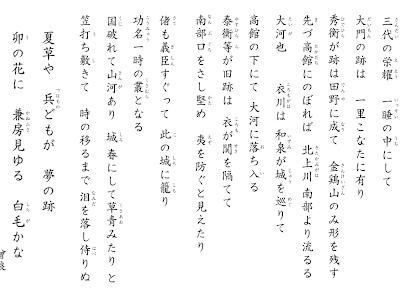 三代の栄耀　一睡の中にして
大門の跡は　一里こなたに有り
秀衡が跡は田野に成て　金鶏山のみ形を残す
先づ高館にのぼれば　北上川南部より流るる
大河也　衣川は　和泉が城を巡りて
高館の下にて　大河に落ち入る
泰衡等が旧跡は　衣が関を隔てて
南部口をさし堅め　夷を防ぐと見えたり
偖も義臣すぐって　此の城に籠り
功名一時の叢となる
国破れて山河あり　城春にして草青みたりと
笠打ち敷きて　時の移るまで　泪を落し侍りぬ
夏草や　兵どもが　夢の跡
卯の花に　兼房見ゆる　白毛かな
曽良